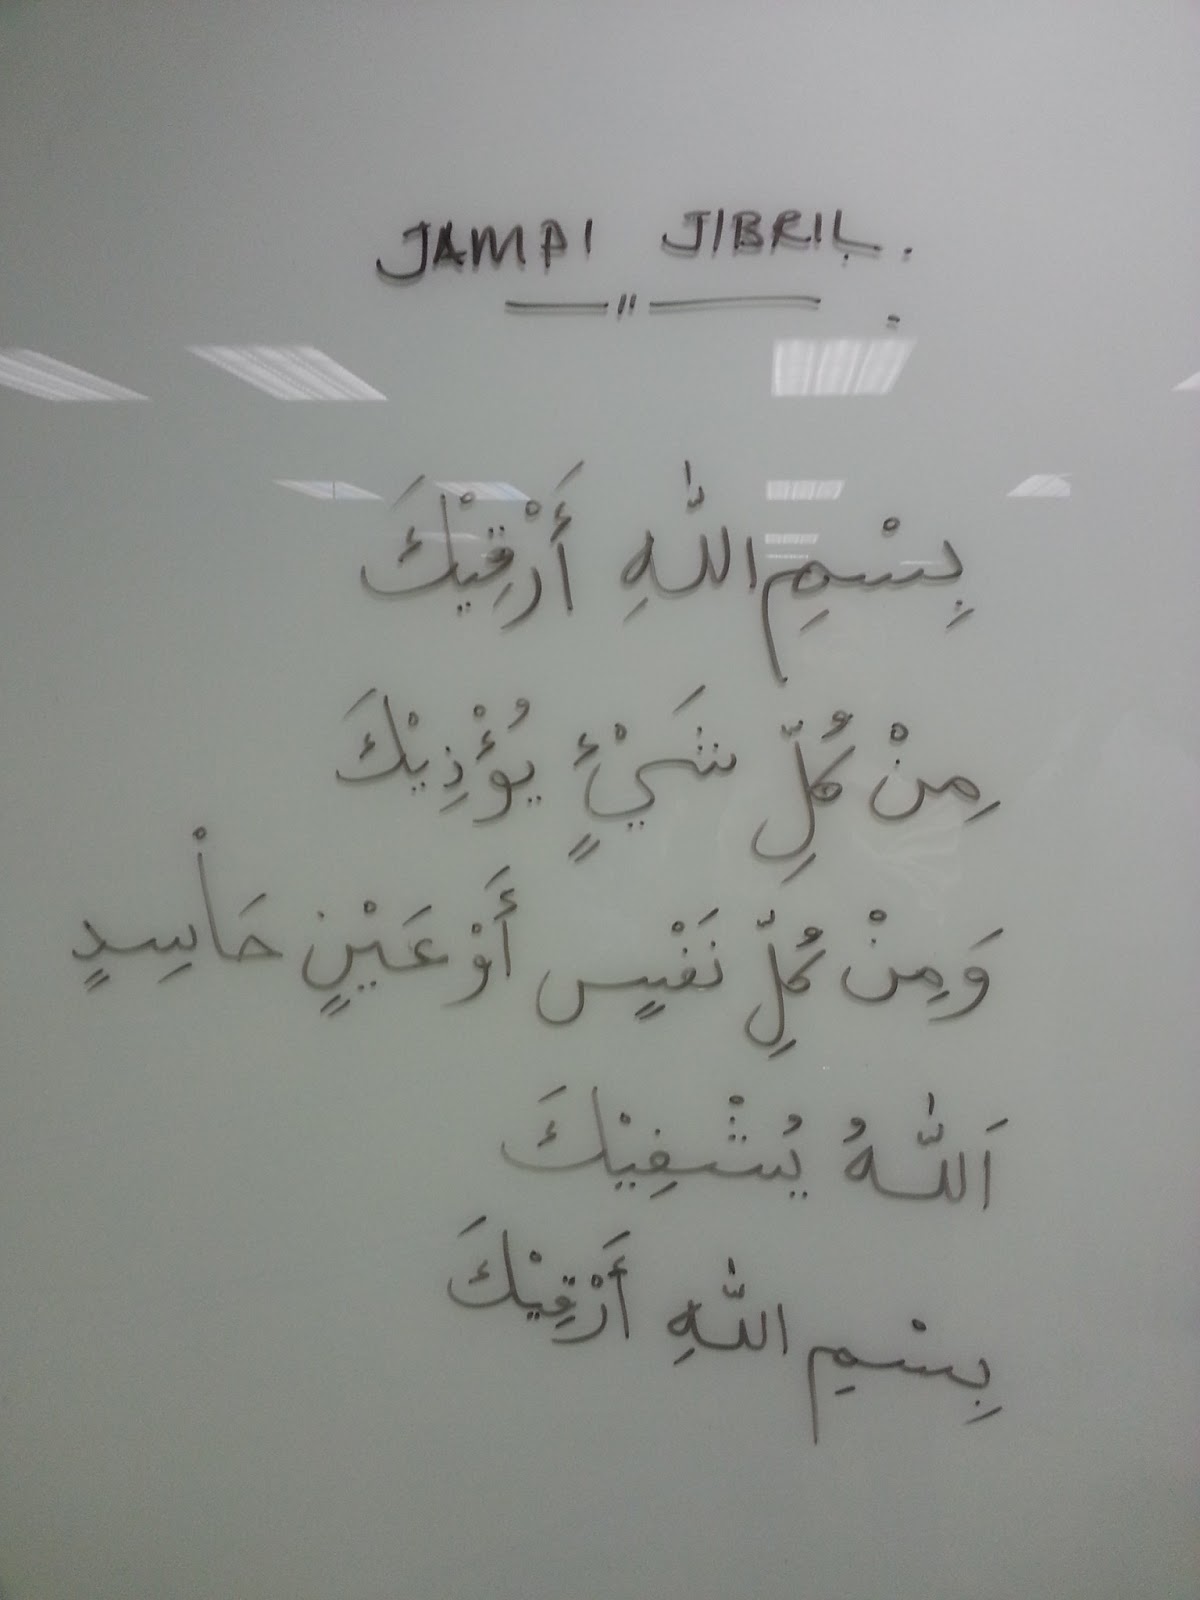 JAMPI JIBRIL.
بِسْمِ اللّٰهِ أَرْقِيْكَ
مِنْ كُلِّ شَيْئٍ يُؤْذِيْكَ
وَمِنْ كُلِّ نَفْسٍ أَوْ عَيْنٍ حَاْسِدٍ
اَللّٰهُ يُشْفِيْكَ
بِسْمِ اللّٰهِ أَرْقِيْكَ